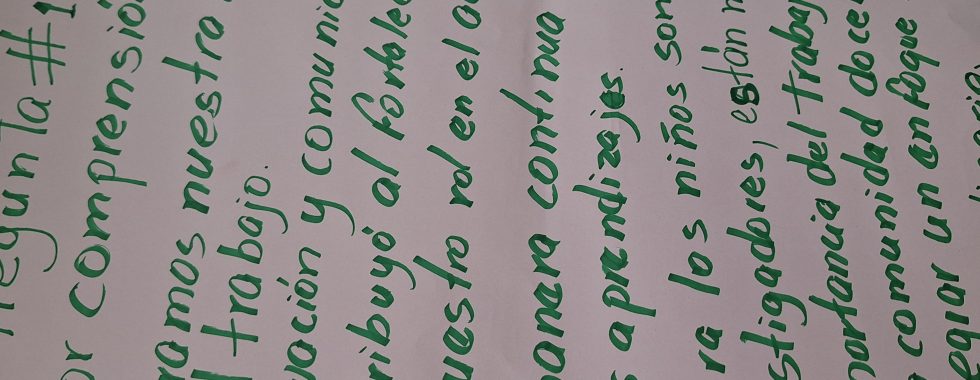 regunta #1
or comprensió
ramos nuestro
l trabajo.
vación y comunic
ribuyó al fortalec
uestro rol en el a
anera continua
s aprendizajes.
ra los niños son
stigadores, están n
portancia del trabaj
comunidad doce
egiar un enfoque